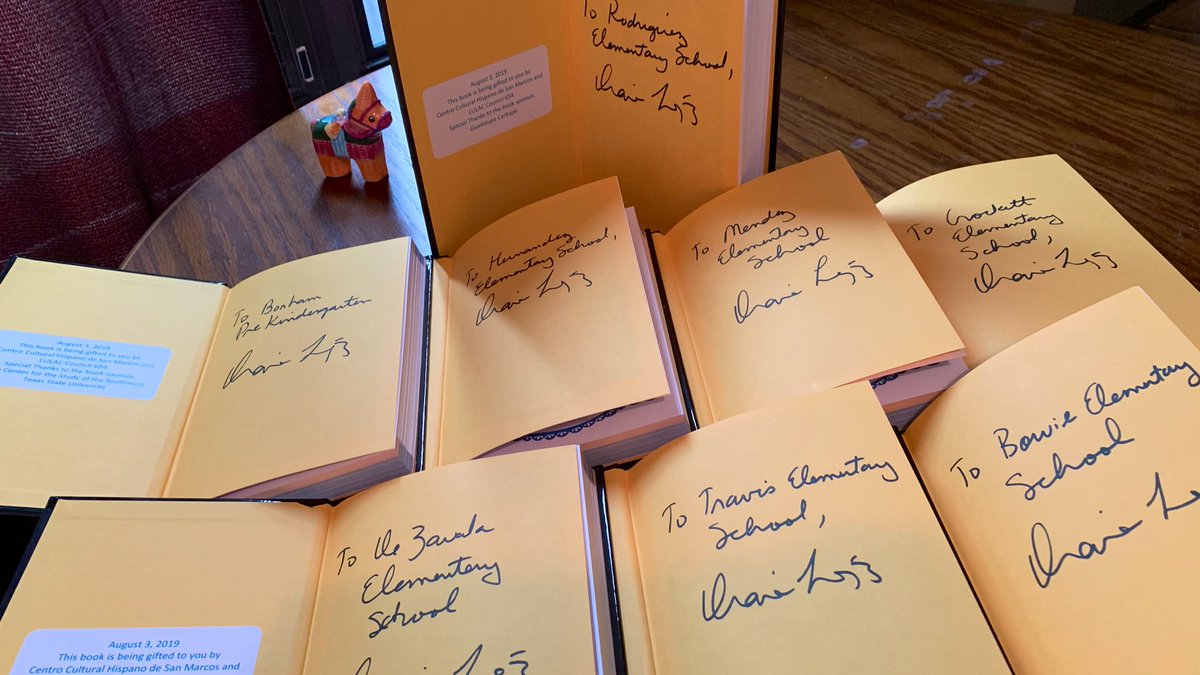 To Rodriguez
Elementary School,
August 3, 2019
This book is being gifted to you by
Centro Cultural Hispano de San Marcos and
LULAC Council 654.
Special Thanks to the book sponsor.
Guadalupe Carbajal
To Hernandez
Elementary School,
To Mendez
Elementary
School
To Crockett
Elementary
School,
August 3, 2019
This book is being gifted to you by
Centro Cultural Hispano de San Marcos and
LULAC Council 654.
Special Thanks to the book sponsor.
Center for the Study of the Southwest,
Texas State University
To Bonham
Pre Kindergarten
To De Zavala
Elementary
School
To Travis Elementary
School,
To Bowie Elementary
School
August 3, 2019
This book is being gifted to you by
Centro Cultural Hispano de San Marcos and